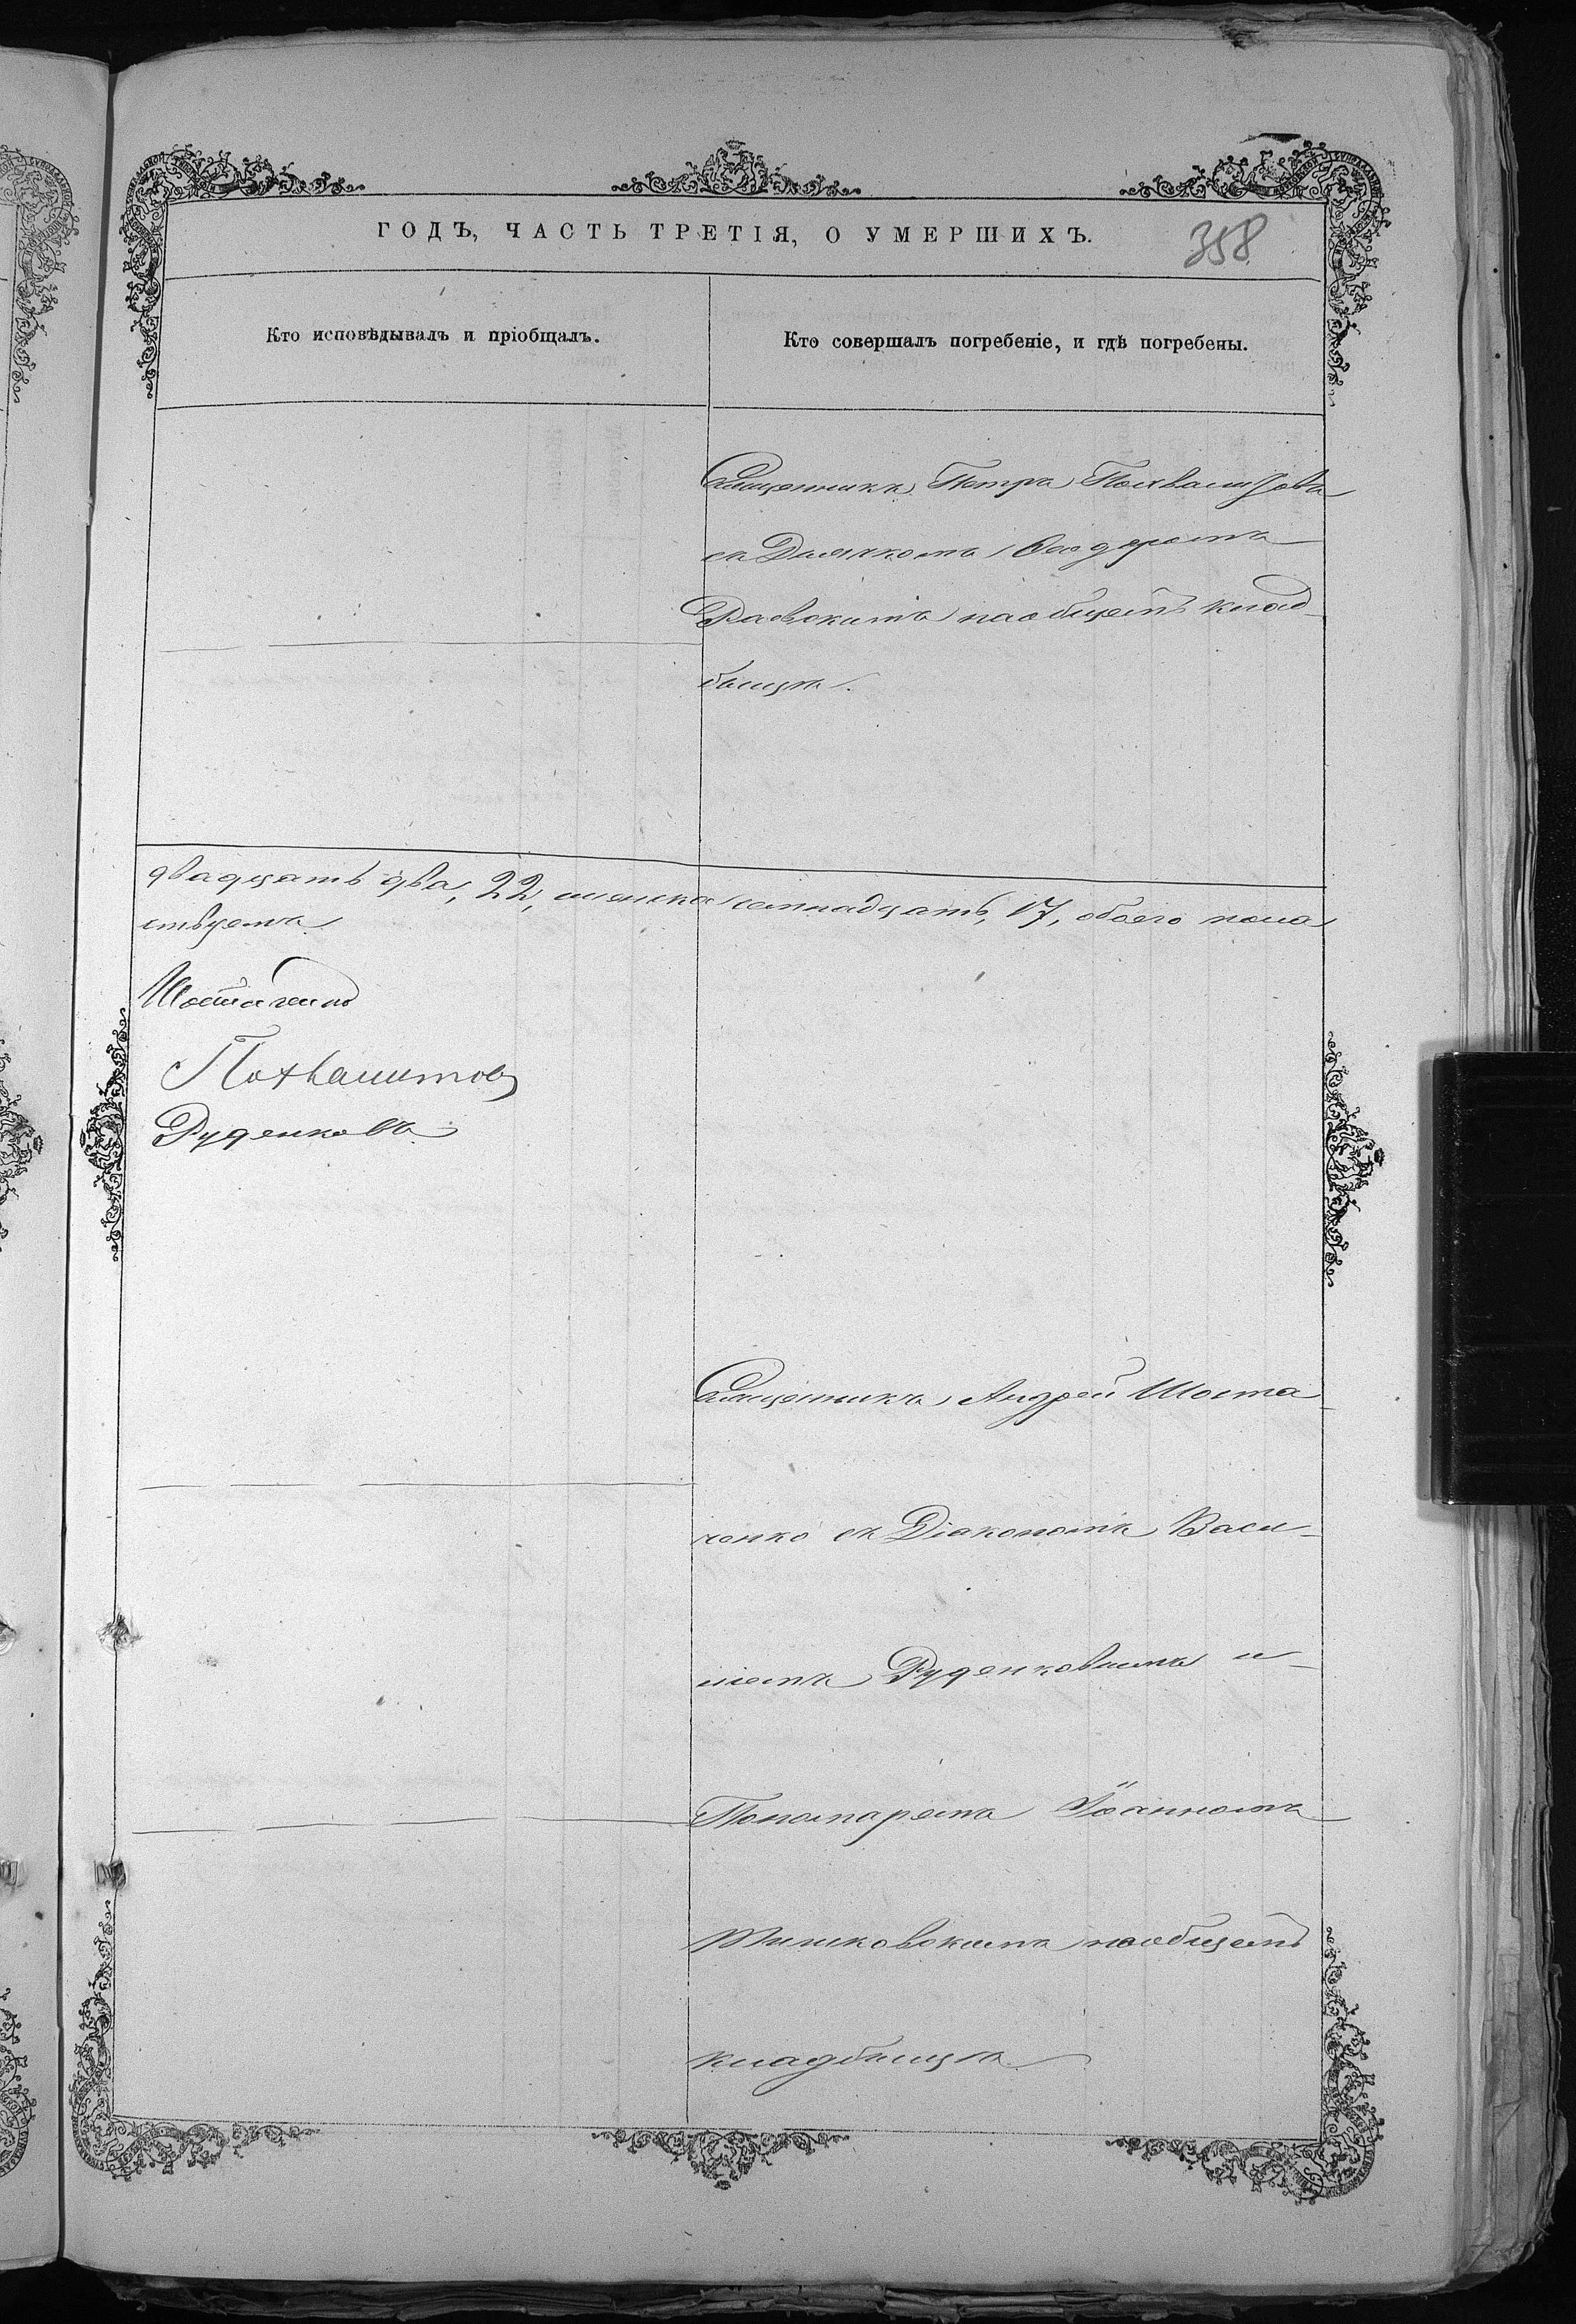 ГОДЪ, ЧАСТЬ ТРЕТІЯ, О УМЕРШИХЪ.
358
Кто исповѣдывалъ и пріобщалъ.
Кто совершалъ погребеніе, и гдѣ погребены.
Священникъ Петръ
съ Дьячкомъ Ѳеодоромъ
Раевскимъ на общемъ клад-
бищѣ.
двадцать два, 22, женска семнадцать, 17, обоего пола
ствуемъ
Шостаченко
Похвалитовъ
Руденковъ
Священникъ Андрей Шоста-
ченко съ Діакономъ Васи-
ліемъ Руденковымъ и
Пономаремъ Іоанномъ
на общемъ
кладбищѣ